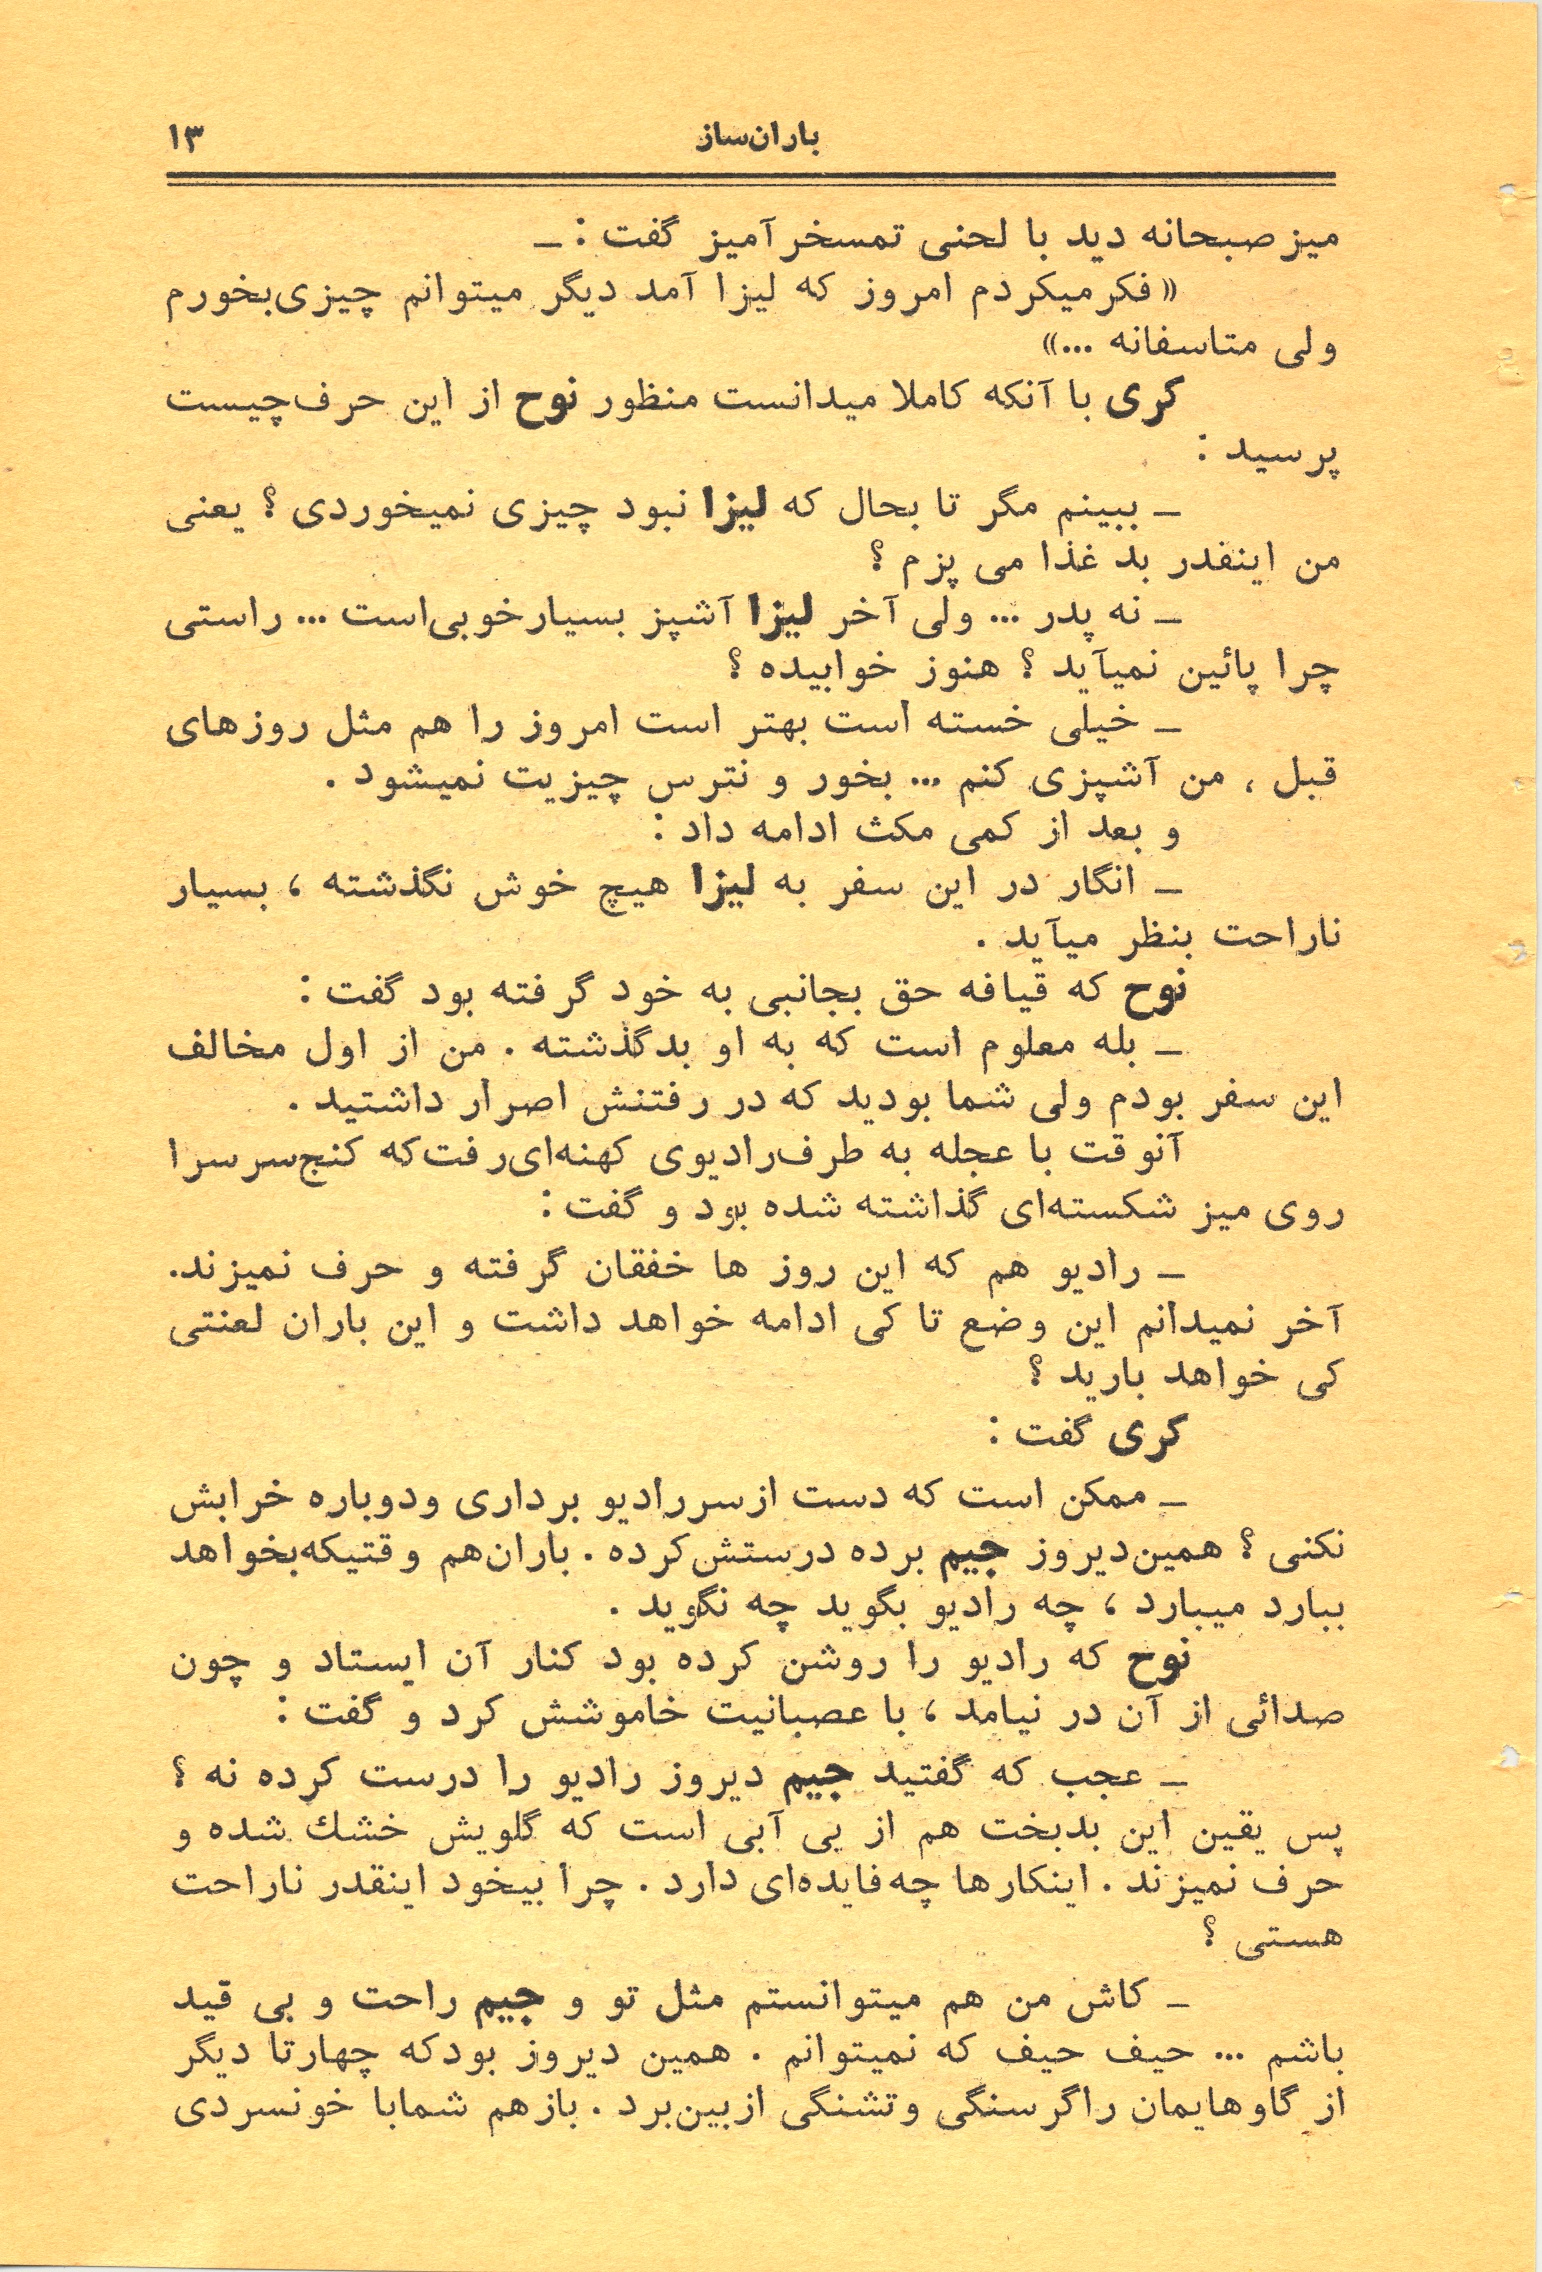 باران‌ساز ۱۳
میز صبحانه دید با لحنی تمسخر آمیز گفت : ـ
« فکر میکردم امروز که لیزا آمد دیگر میتوانم چیزی‌بخورم
ولی متاسفانه ...»
کری با آنکه کاملا میدانست منظور نوح از این حرف‌چیست
پرسید :
ـ ببینم مگر تا بحال که لیزا نبود چیزی نمیخوردی ؟ یعنی
من اینقدر بد غذا می پزم ؟
ـ نه پدر ... ولی آخر لیزا آشپز بسیارخوبی‌است ... راستی
چرا پائین نمیآید ؟ هنوز خوابیده ؟
ـ خیلی خسته است بهتر است امروز را هم مثل روزهای
قبل ، من آشپزی کنم ... بخور و نترس چیزیت نمیشود .
و بعد از کمی مکث ادامه داد :
ـ انگار در این سفر به لیزا هیچ خوش نگذشته ، بسیار
ناراحت بنظر میآید .
نوح که قیافه حق بجانبی به خود گرفته بود گفت :
ـ بله معلوم است که به او بدگذشته . من از اول مخالف
این سفر بودم ولی شما بودید که در رفتنش اصرار داشتید .
آنوقت با عجله به طرف‌رادیوی کهنه‌ای‌رفت‌که کنج‌سرسرا
روی میز شکسته‌ای گذاشته شده بود و گفت :
ـ رادیو هم که این روز ها خفقان گرفته و حرف نمیزند.
آخر نمیدانم این وضع تا کی ادامه خواهد داشت و این باران لعنتی
کی خواهد بارید ؟
کری گفت :
ـ ممکن است که دست ازسررادیو برداری ودوباره خرابش
نکنی ؟ همین‌دیروز جیم برده درستش‌کرده . باران‌هم وقتیکه‌بخواهد
ببارد میبارد ، چه رادیو بگوید چه نگوید .
نوح که رادیو را روشن کرده بود کنار آن ایستاد و چون
صدائی از آن در نیامد ، با عصبانیت خاموشش کرد و گفت :
ـ عجب که گفتید جیم دیروز رادیو را درست کرده نه ؟
پس یقین این بدبخت هم از بی آبی است که گلویش خشك شده و
حرف نمیزند . اینکارها چه‌فایده‌ای دارد . چرا بیخود اینقدر ناراحت
هستی ؟
ـ کاش من هم میتوانستم مثل تو و جیم راحت و بی قید
باشم ... حیف حیف که نمیتوانم . همین دیروز بودکه چهارتا دیگر
از گاوهایمان راگرسنگی وتشنگی ازبین‌برد . بازهم شمابا خونسردی